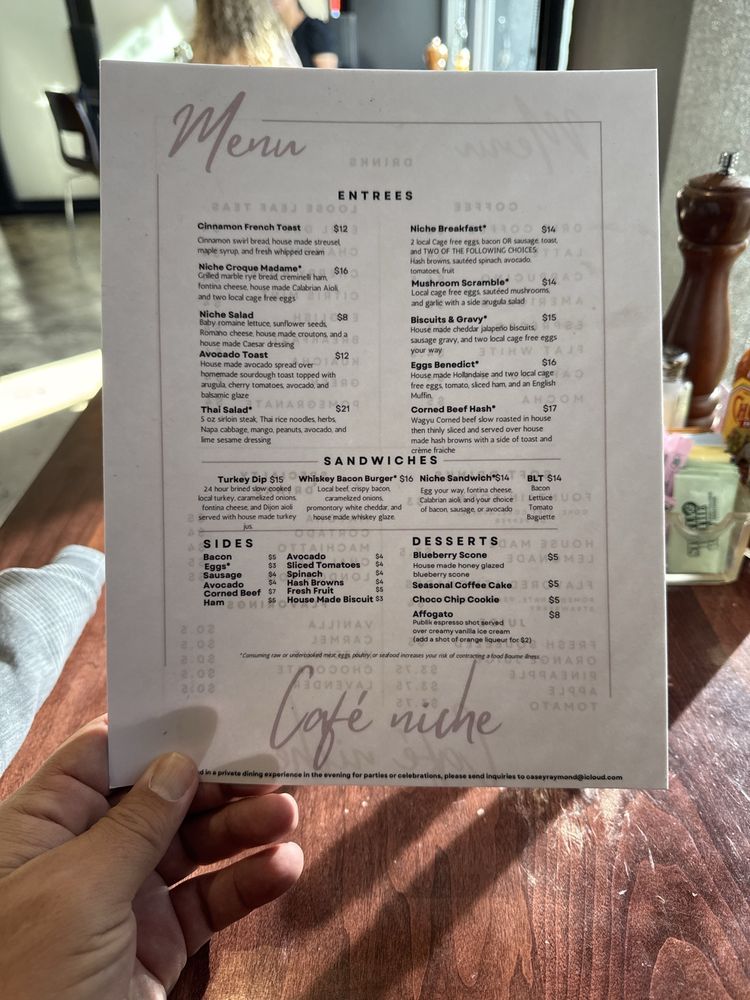 Menu
ENTREES
Cinnamon French Toast $12
Cinnamon swirl bread, house made streusel,
maple syrup, and fresh whipped cream
Niche Croque Madame* $16
Grilled marble rye bread, creminelli ham,
fontina cheese, house made Calabrian Aioli,
and two local cage free eggs
Niche Salad $8
Baby romaine lettuce, sunflower seeds,
Romano cheese, house made croutons, and a
house made Caesar dressing
Avocado Toast $12
House made avocado spread over
homemade sourdough toast topped with
arugula, cherry tomatoes, avocado, and
balsamic glaze
Thai Salad* $21
5 oz sirloin steak, Thai rice noodles, herbs,
Napa cabbage, mango, peanuts, avocado, and
lime sesame dressing
Niche Breakfast* $14
2 local Cage free eggs, bacon OR sausage, toast,
and TWO OF THE FOLLOWING CHOICES:
Hash browns, sautéed spinach, avocado,
tomatoes, fruit
Mushroom Scramble* $14
Local cage free eggs, sautéed mushrooms,
and garlic with a side arugula salad
Biscuits & Gravy* $15
House made cheddar jalapeño biscuits,
sausage gravy, and two local cage free eggs
your way
Eggs Benedict* $16
House made Hollandaise and two local cage
free eggs, tomato, sliced ham, and an English
Muffin.
Corned Beef Hash* $17
Wagyu Corned beef slow roasted in house
then thinly sliced and served over house
made hash browns with a side of toast and
crème fraiche
SANDWICHES
Turkey Dip $15
24 hour brined slow cooked
local turkey, caramelized onions,
fontina cheese, and Dijon aioli
served with house made turkey
jus.
Whiskey Bacon Burger* $16
Local beef, crispy bacon,
caramelized onions,
promontory white cheddar, and
house made whiskey glaze.
Niche Sandwich* $14
Egg your way, fontina cheese,
Calabrian aioli, and your choice
of bacon, sausage, or avocado
BLT $14
Bacon
Lettuce
Tomato
Baguette
SIDES
Bacon $5
Eggs* $3
Sausage $4
Avocado $4
Corned Beef $7
Ham $5
Avocado $4
Sliced Tomatoes $4
Spinach $4
Hash Browns $4
Fresh Fruit $5
House Made Biscuit $3
DESSERTS
Blueberry Scone $5
House made honey glazed
blueberry scone
Seasonal Coffee Cake $5
Choco Chip Cookie $5
Affogato $8
Publik espresso shot served
over creamy vanilla ice cream
(add a shot of orange liqueur for $2)
*Consuming raw or undercooked meat, eggs, poultry, or seafood increases your risk of contracting a food Bourne illness.
Café niche
in a private dining experience in the evening for parties or celebrations, please send inquiries to caseyraymond@icloud.com